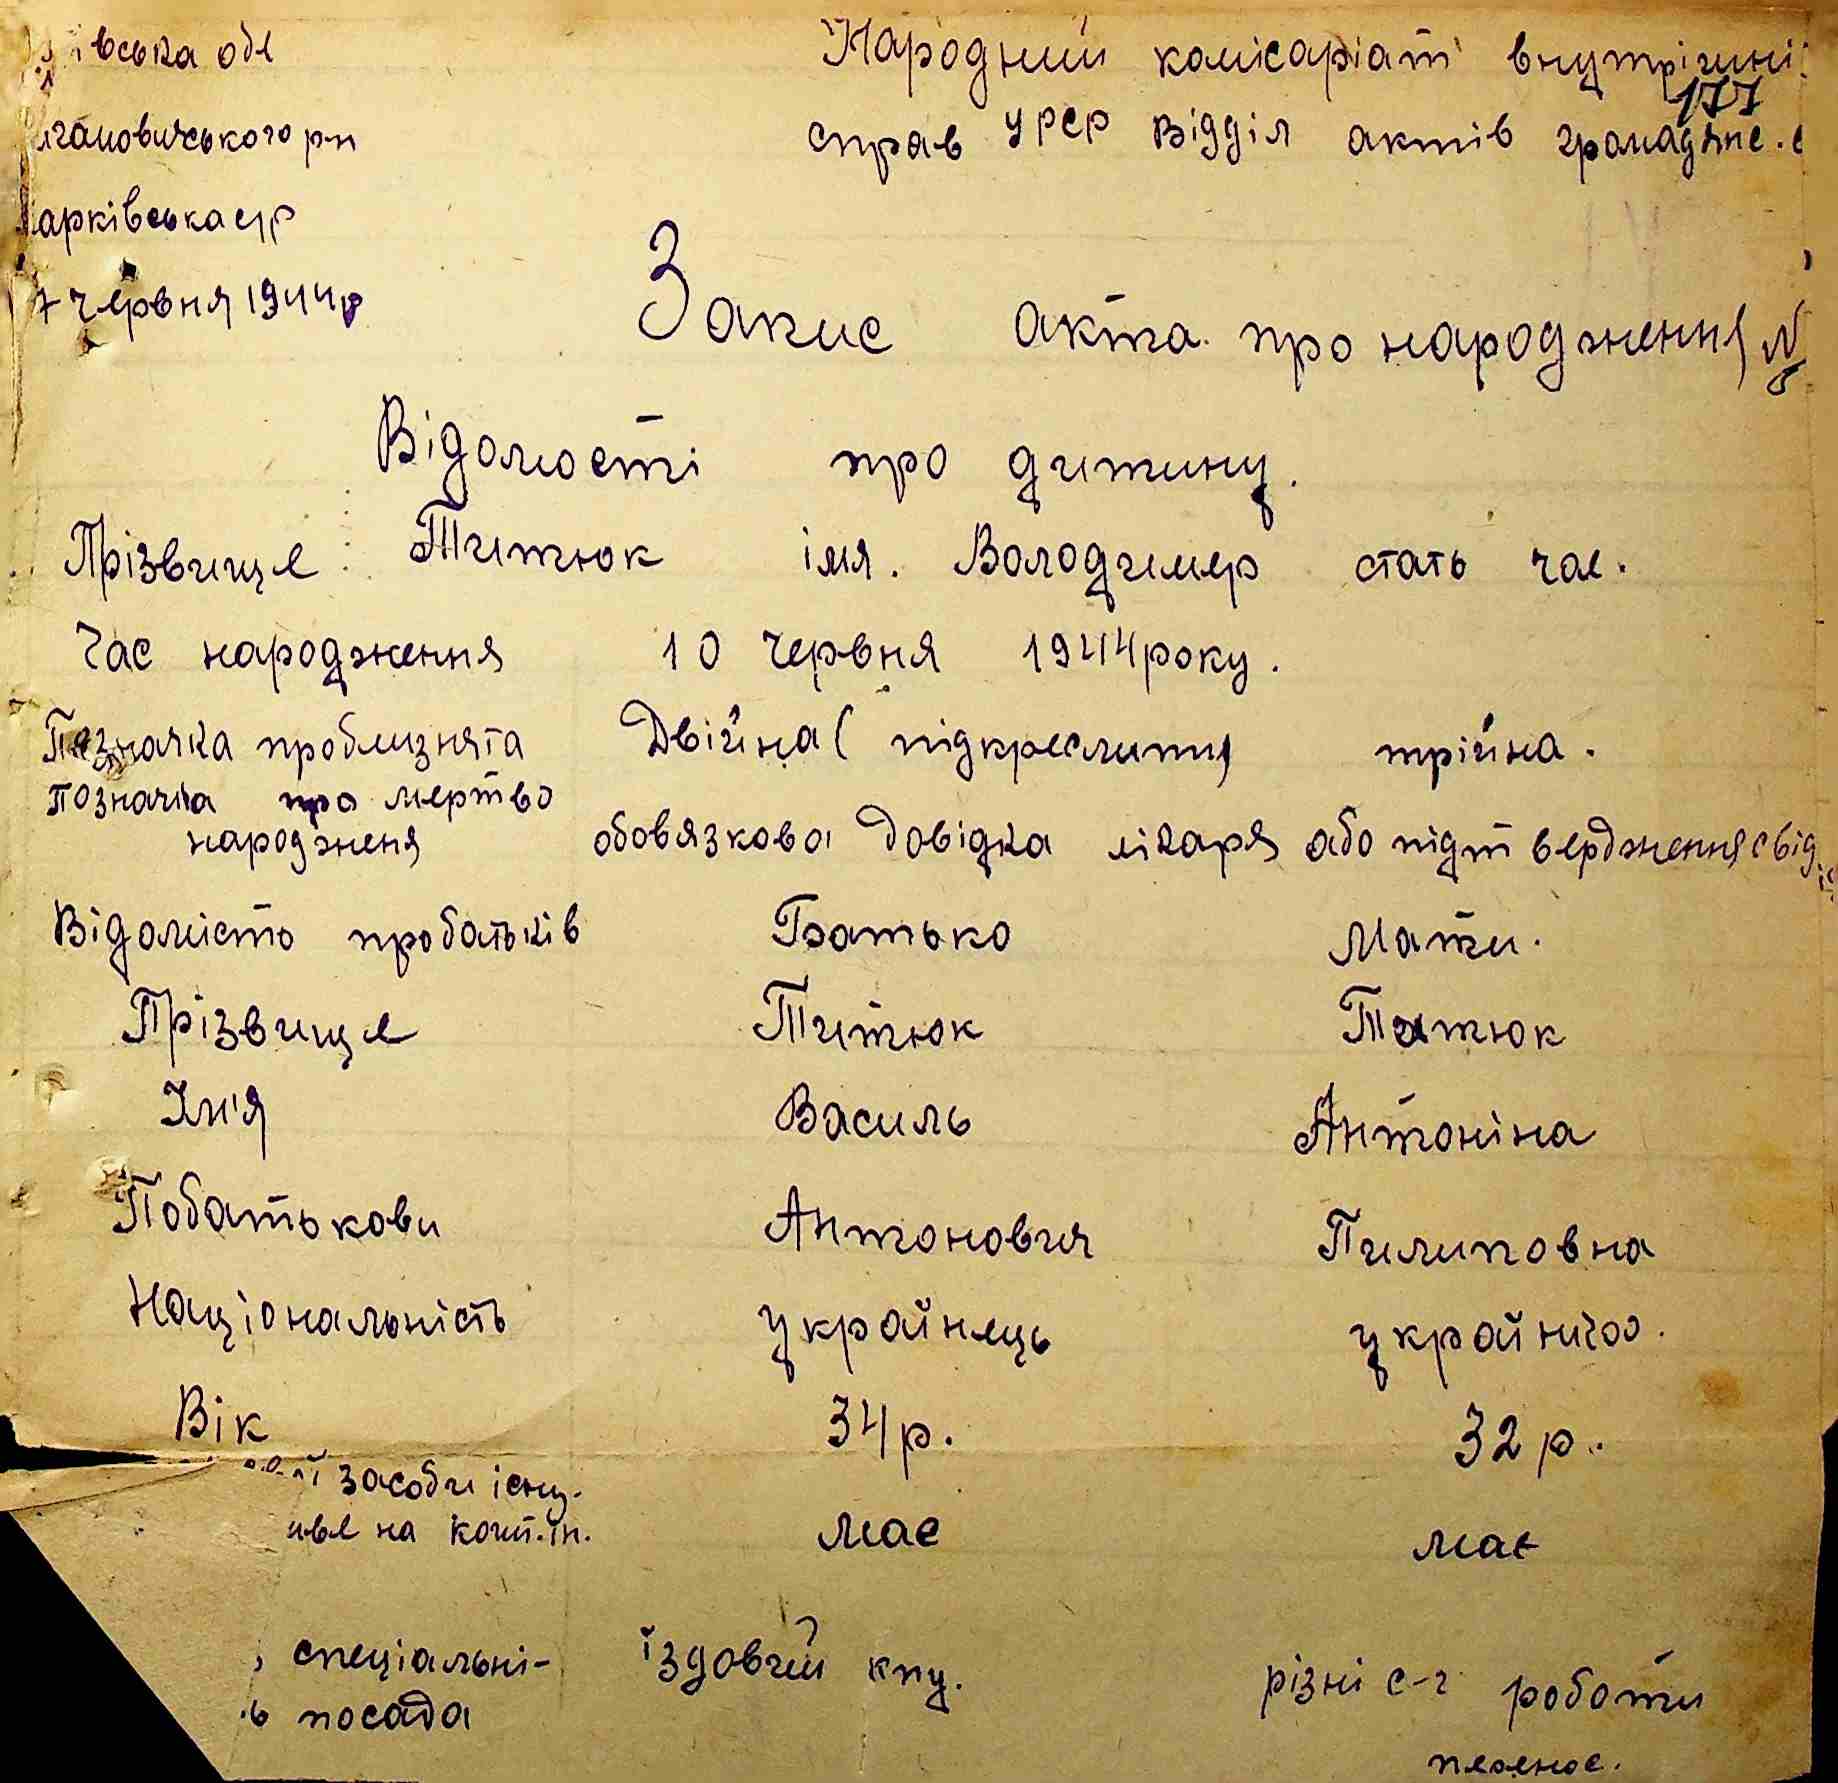 івська обл
Народний комісаріат внутрішні
177
гановичського рн
справ УРСР Відділ актів громадянс. с
арківська с/р
7 червня 1944р
Запис акта про народження №
Відомості про дитину.
Прізвище: Титюк імя. Володимер стать чол.
Час народження 10 червня 1944 року.
Позначка проблизнята Двійна (підкреслити) трійна.
Позначка про мертво
народженя обовязкова довідка лікаря або підтвердження свід
Відомісто пробатьків Батько Мати.
Прізвище Титюк Титюк
Ім'я Василь Антоніна
Побатькови Антонович Пилиповна
Національність украйнець украйнка.
Вік 34 р. 32 р.
засоби існу-
на кошт. ін. має має
, спеціальні- їздовий кпу. різні с-г роботи
ь посада